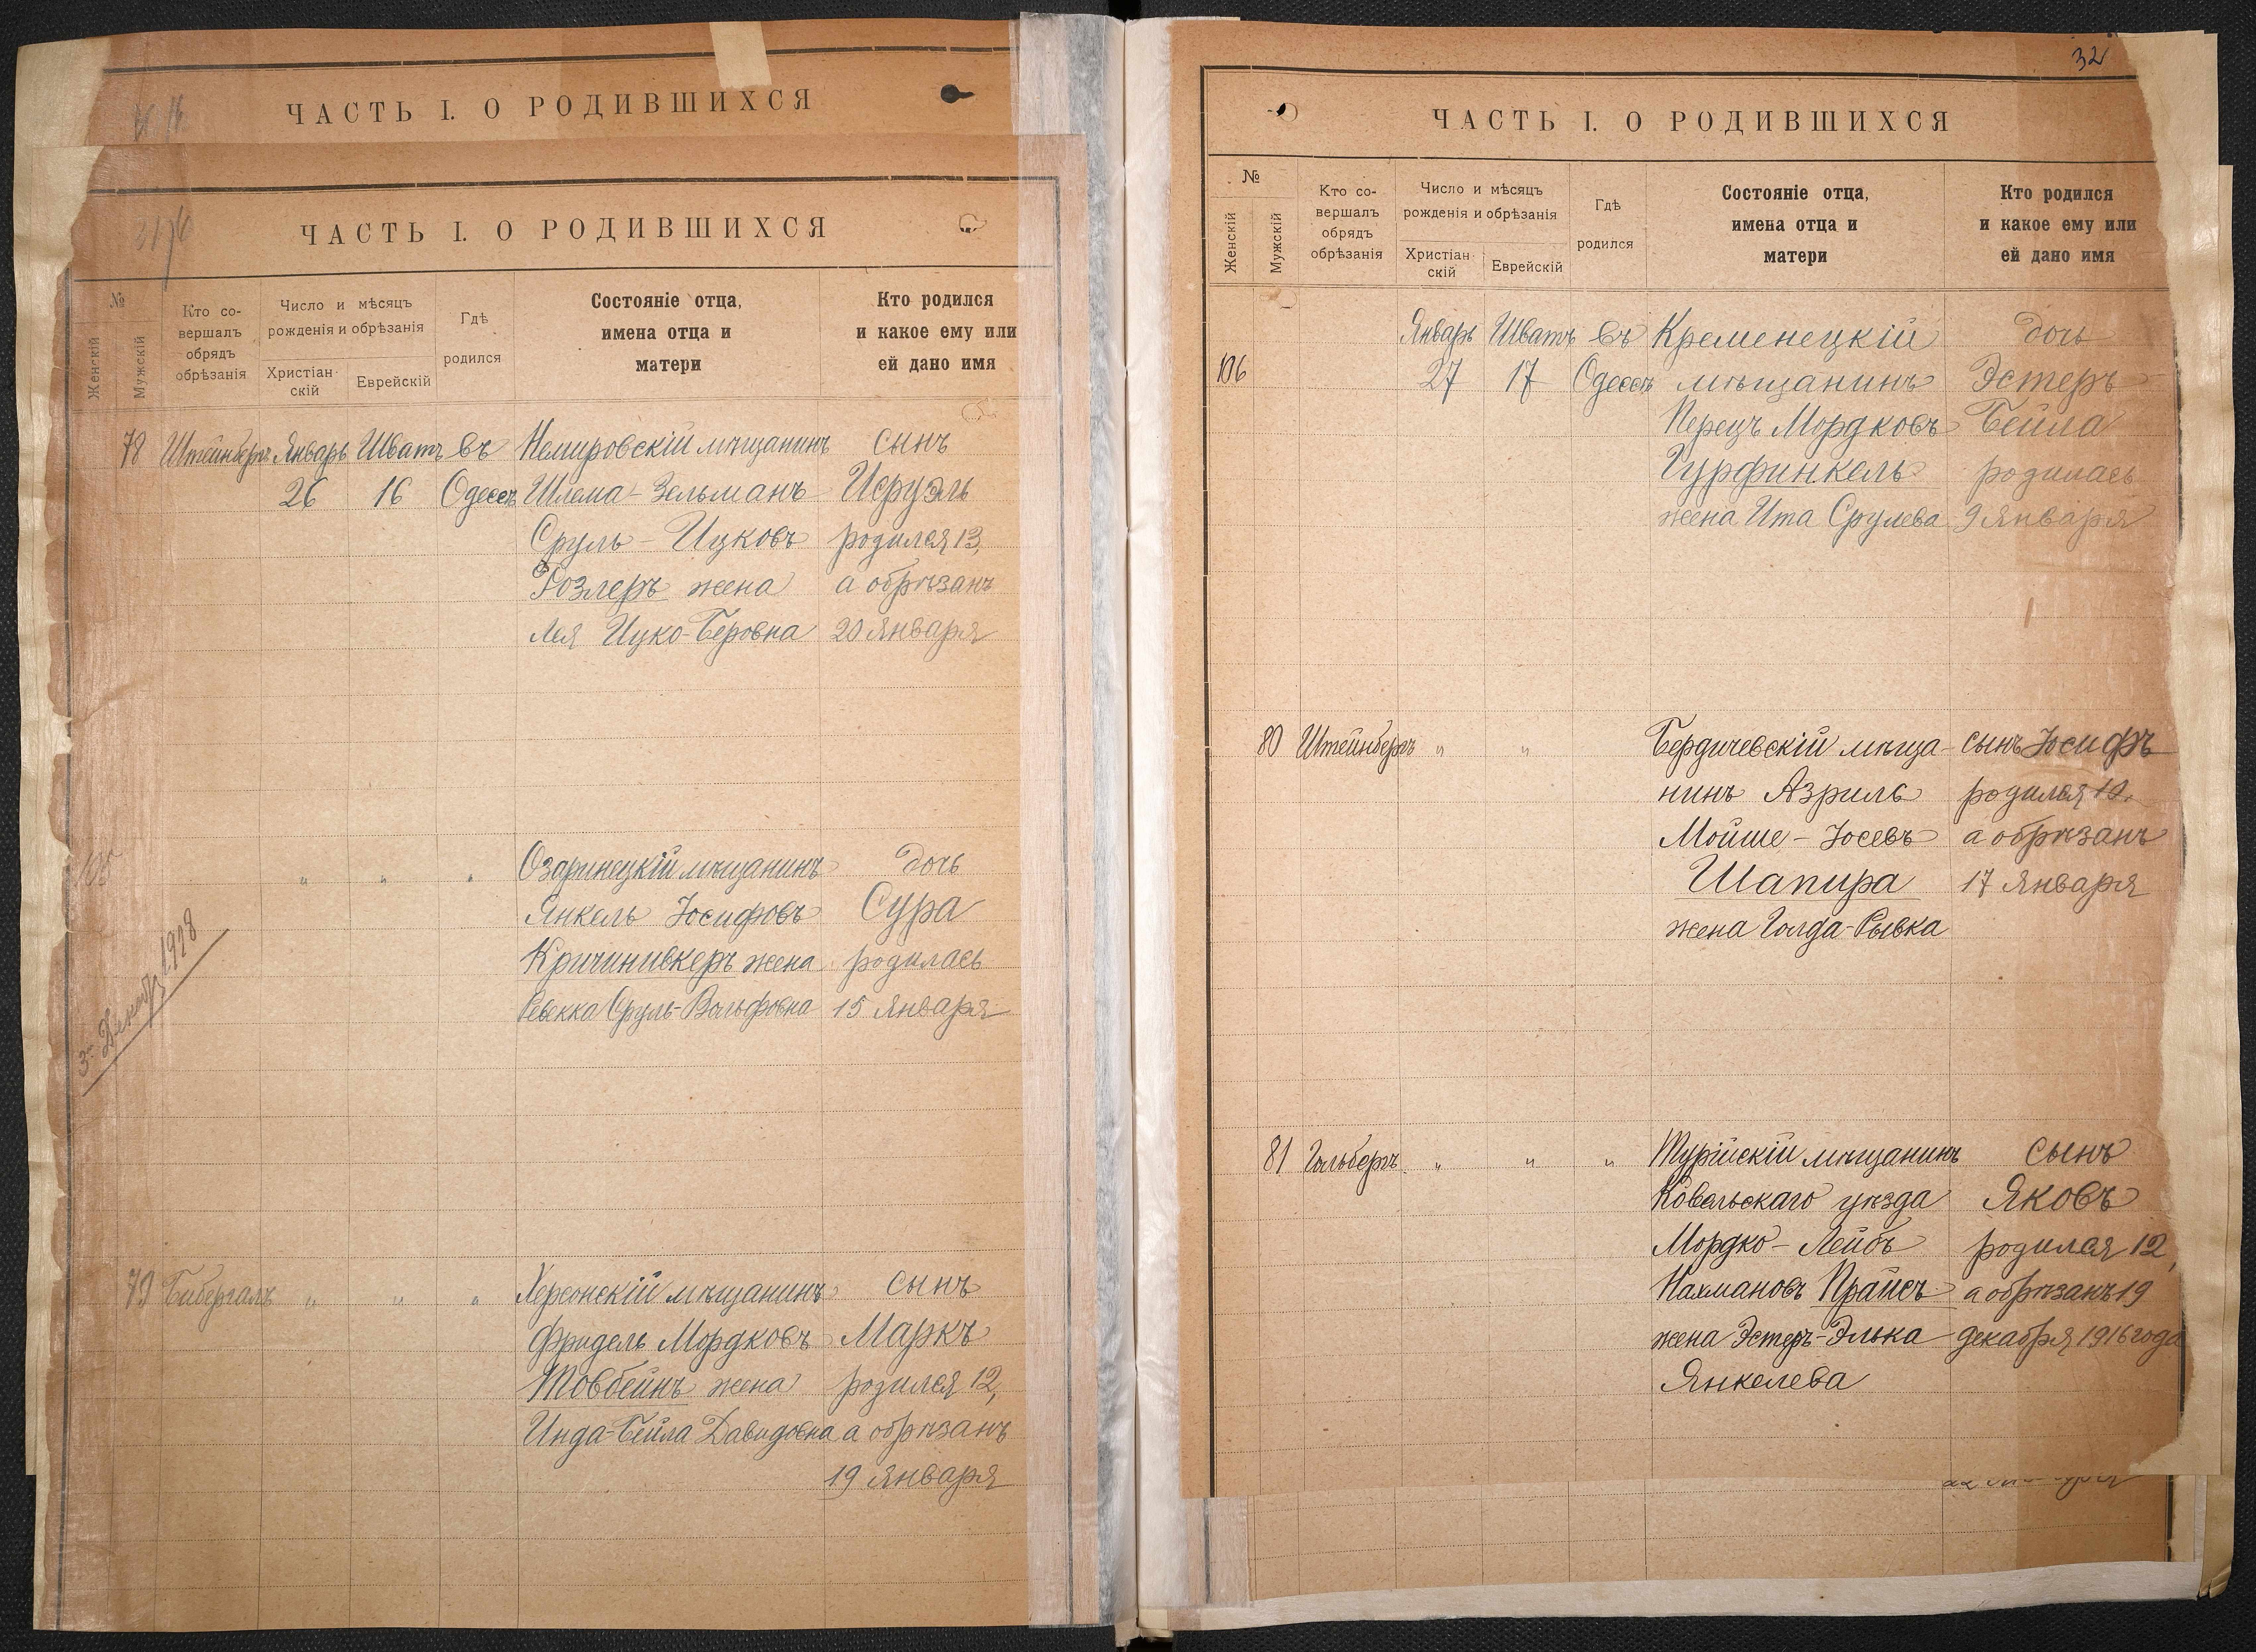 ЧАСТЬ I. О РОДИВШИХСЯ
ЧАСТЬ I. О РОДИВШИХСЯ
№
Женскій
Мужскій
Кто со-
вершалъ
обрядъ
обрѣзанія
Число и мѣсяцъ
рожденія и обрѣзанія
Христіан-
скій
Еврейскій
Гдѣ
родился
Состояніе отца,
имена отца и
матери
Кто родился
и какое ему или
ей дано имя
78 Штейнбергъ Январь Шватъ въ Немировскій мѣщанинъ сынъ
26 16 Одессѣ Шлема-Зельманъ Исруэль
Сруль-Ицковъ родился 13,
Розлеръ жена а обрѣзанъ
Лея Ицко-Беровна 20 Января
" " " Озаринецкій мѣщанинъ дочь
Янкель Іосифовъ Сура
Кричинивкеръ жена родилась
Ревекка Сруль-Вольфовна 15 Января
1928
79 Бибергалъ " " " Херсонскій мѣщанинъ сынъ
Фридель Мордковъ Маркъ
Товбейнъ жена родился 12,
Инда-Бейла Давидовна а обрѣзанъ
19 Января
32
ЧАСТЬ I. О РОДИВШИХСЯ
№
Женскій
Мужскій
Кто со-
вершалъ
обрядъ
обрѣзанія
Число и мѣсяцъ
рожденія и обрѣзанія
Христіан-
скій
Еврейскій
Гдѣ
родился
Состояніе отца,
имена отца и
матери
Кто родился
и какое ему или
ей дано имя
Январь Шватъ въ Кременецкій дочь
106 27 17 Одессѣ мѣщанинъ Эстеръ
Перецъ Мордковъ Бейла
Гурфинкель родилась
жена Ита Срулева 9 Января
80 Штейнбергъ " " Бердичевскій мѣща- сынъ Іосифъ
нинъ Азриль родился 10,
Мойше-Іосевъ а обрѣзанъ
Шапира 17 Января
жена Голда-Рывка
81 Гольбергъ " " " Турійскій мѣщанинъ сынъ
Ковельскаго уѣзда Яковъ
Мордко-Лейбъ родился 12,
Нахмановъ Прайсъ а обрѣзанъ 19
жена Эстеръ-Элька декабря 1916 года
Янкелева